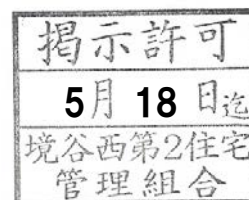 掲示許可
5月 18 日迄
境谷西第2住宅
管理組合